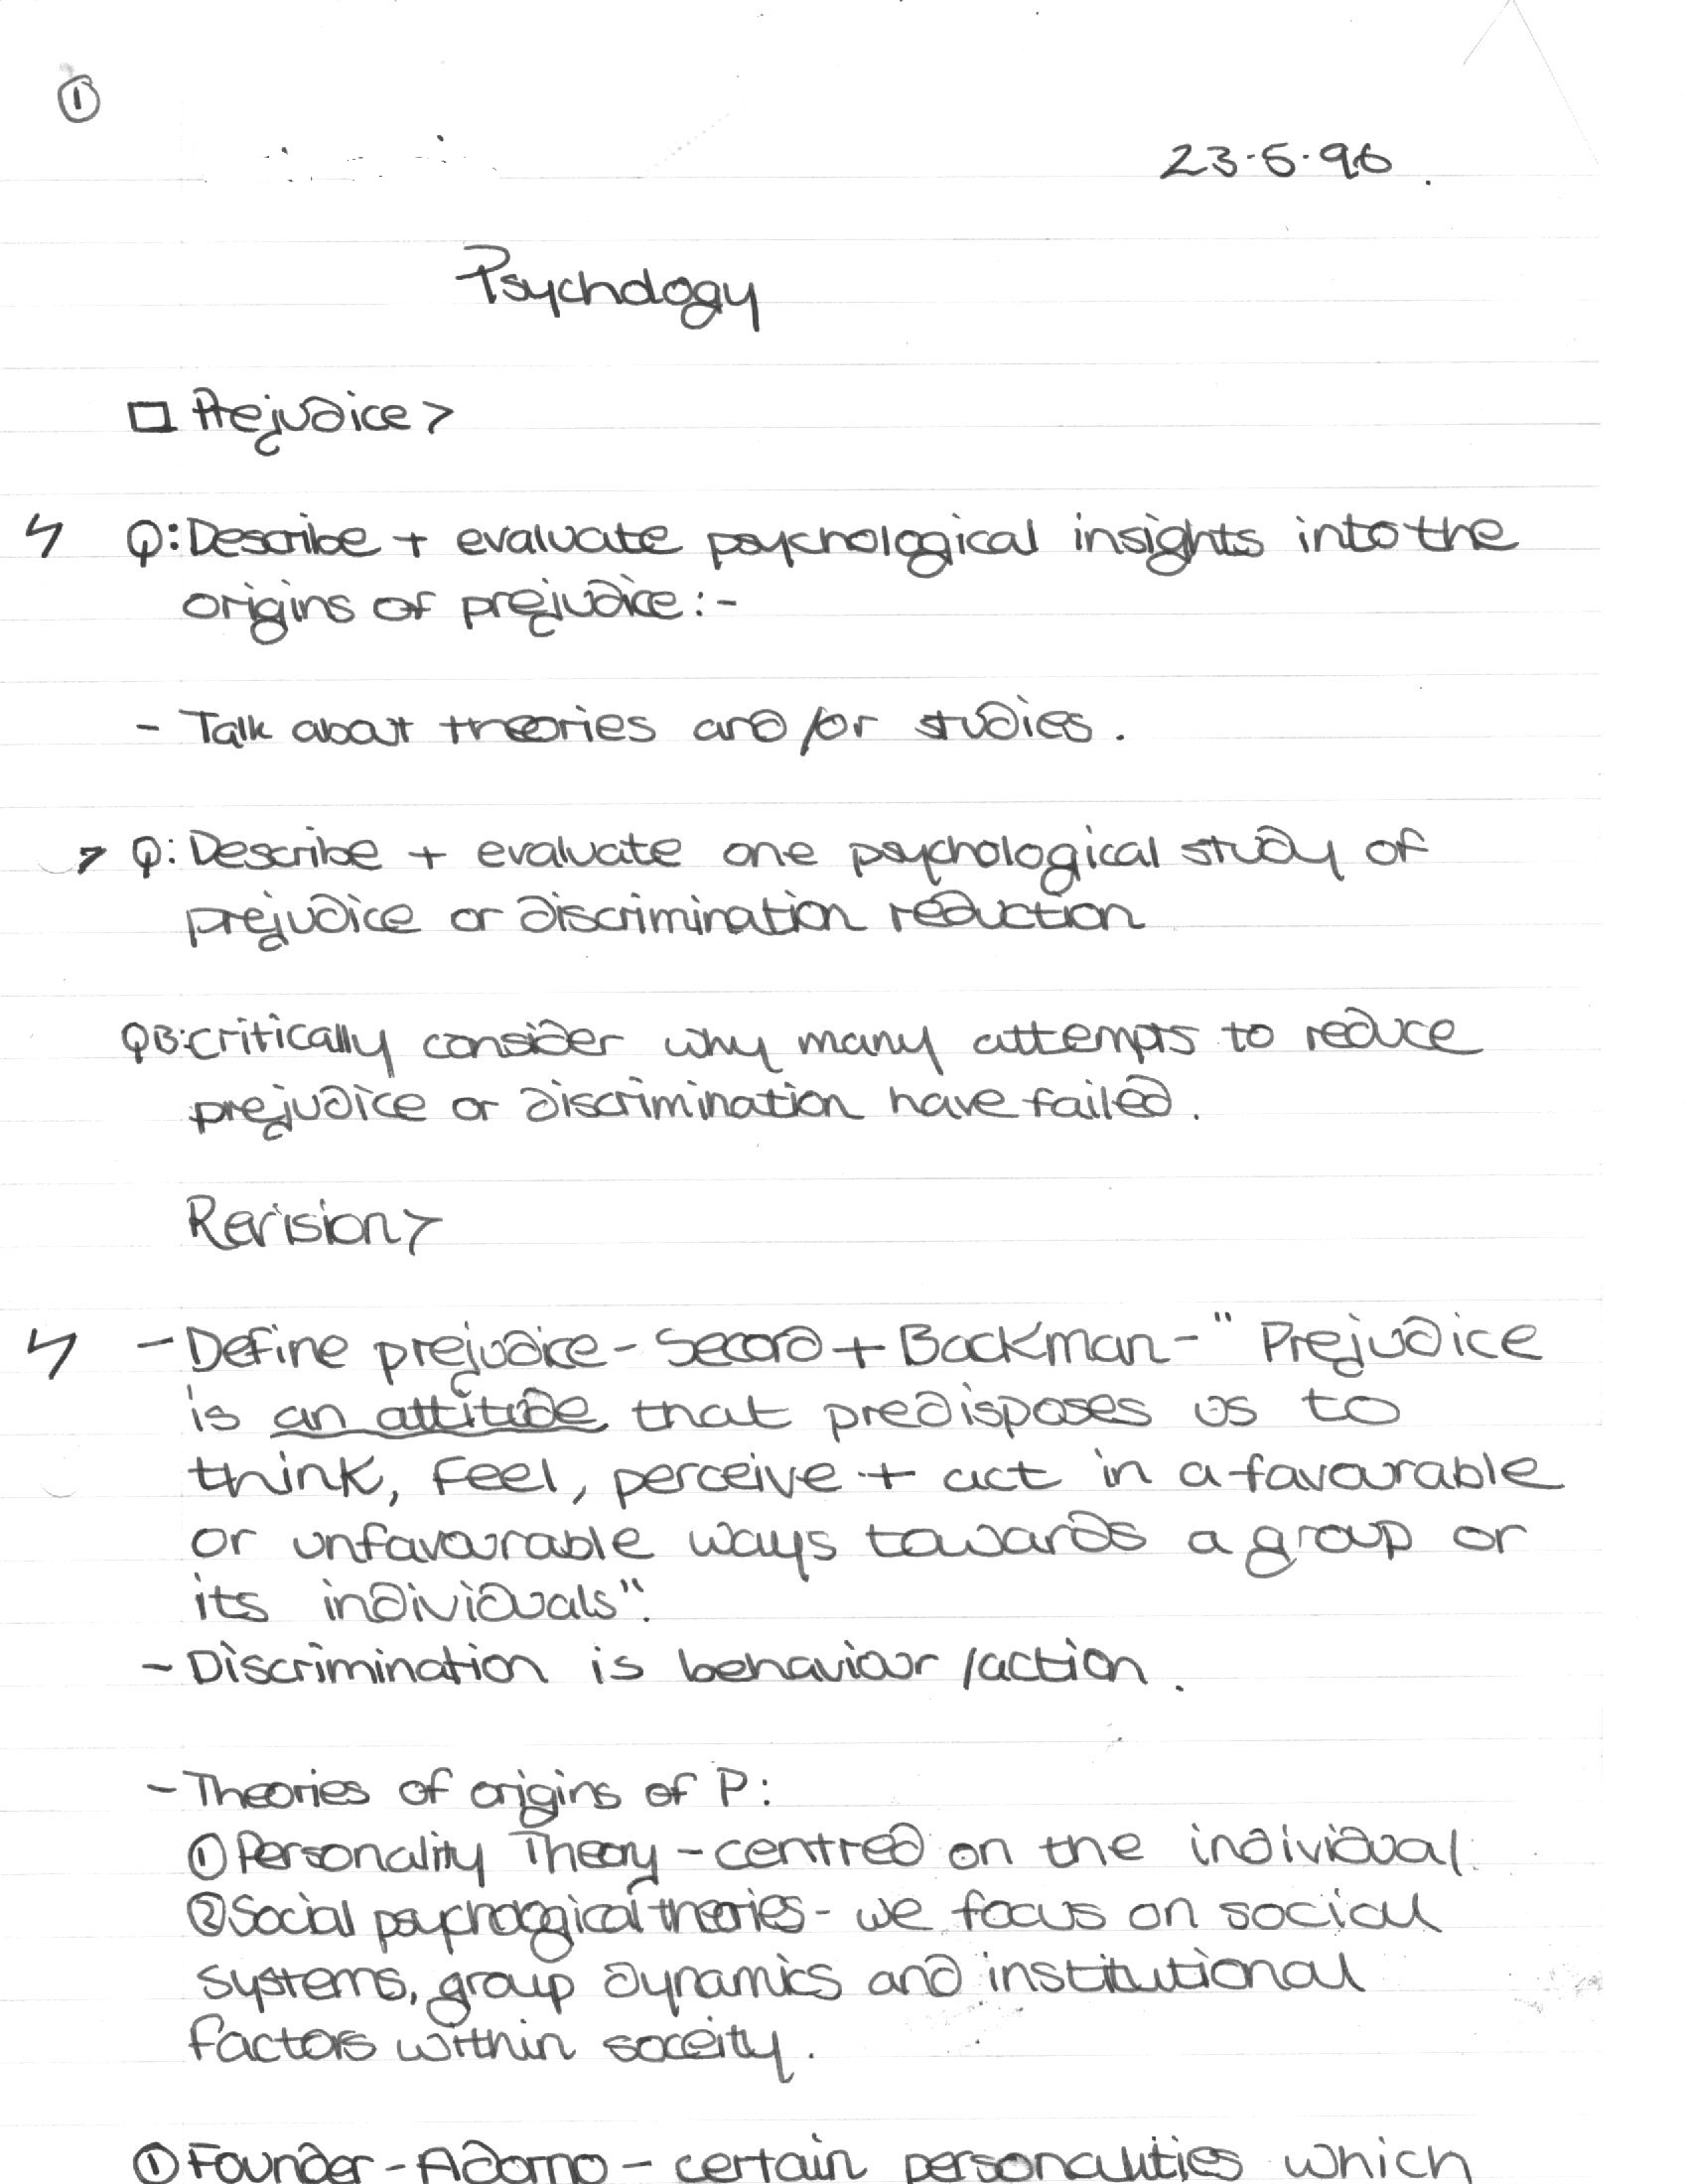 ①
23.5.96
Psychology
□ Prejudice >
Q: Describe + evaluate psychological insights into the
origins of prejudice:-
- Talk about theories and/or studies.
> Q: Describe + evaluate one psychological study of
prejudice or discrimination reduction
QB: critically consider why many attempts to reduce
prejudice or discrimination have failed.
Revision >
- Define prejudice - Secord + Backman - " Prejudice
is an attitude that predisposes us to
think, feel, perceive + act in a favourable
or unfavourable ways towards a group or
its individuals".
- Discrimination is behaviour /action.
- Theories of origins of P:
① Personality Theory - centred on the individual.
② Social psychological theories - we focus on social
systems, group dynamics and institutional
factors within soceity.
① Founder - Adorno - certain personalities which